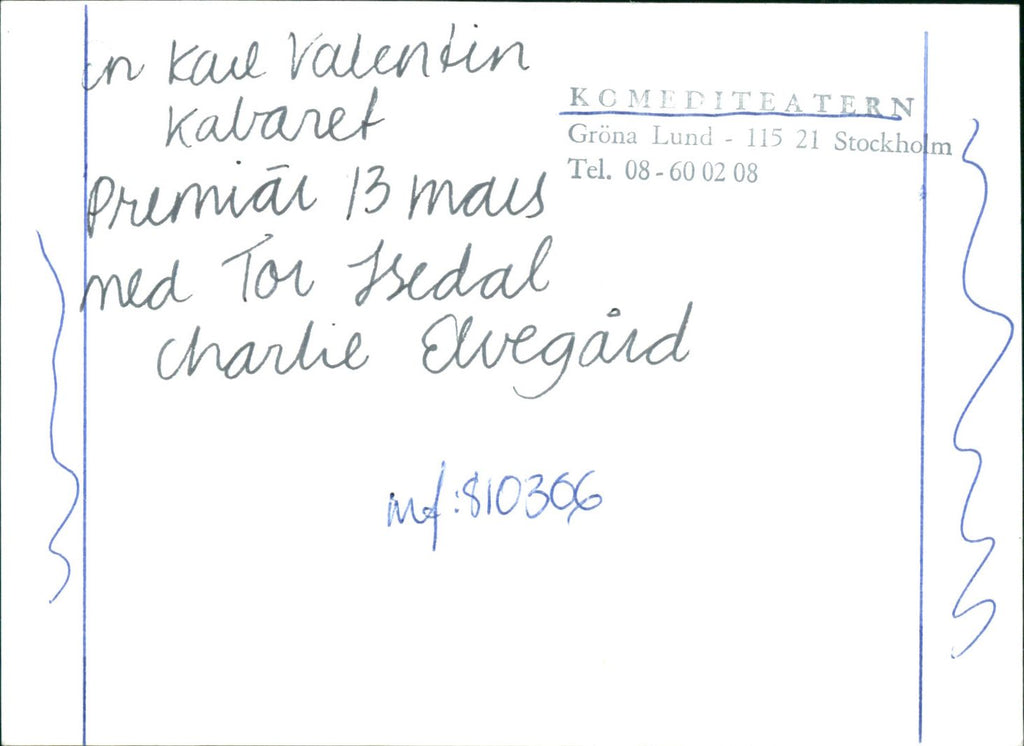 en Karl Valentin
Kabaret
Premiär 13 mars
med Tor Isedal
Charlie Elvegård
KOMEDITEATERN
Gröna Lund - 115 21 Stockholm
Tel. 08-60 02 08
inf:810306